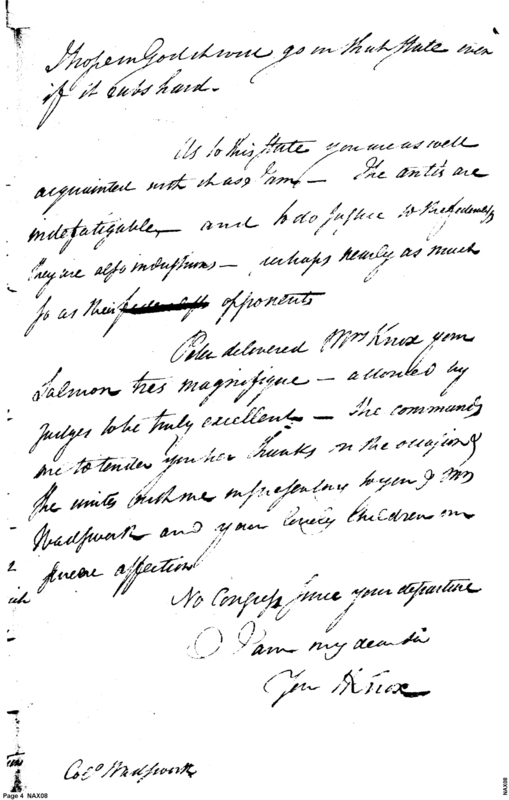 I hope in God it will go in that State even
if it rubs hard.
As to this State you are as well
acquainted with it as I am — The antis are
indefatigable, — and to do justice to the federalists
they are also industrious — perhaps nearly as much
so as their federalist opponents
delivered Mrs Knox your
Salmon tres magnifique — allowed by
judges to be truly excellent — She commands
me to tender you her thanks on the occasion &
She unites with me in presenting to you & Mrs
Wadsworth and your lovely Children our
sincere affection
No Congress since your departure
I am my dear sir
Your HKnox
Colo Wadsworth
Page 4 NAX08
NAX08